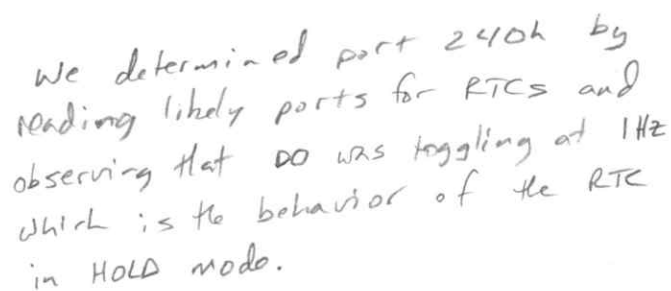 We determined port 240h by
reading likely ports for RTCs and
observing that D0 was toggling at 1HZ
which is the behavior of the RTC
in HOLD mode.